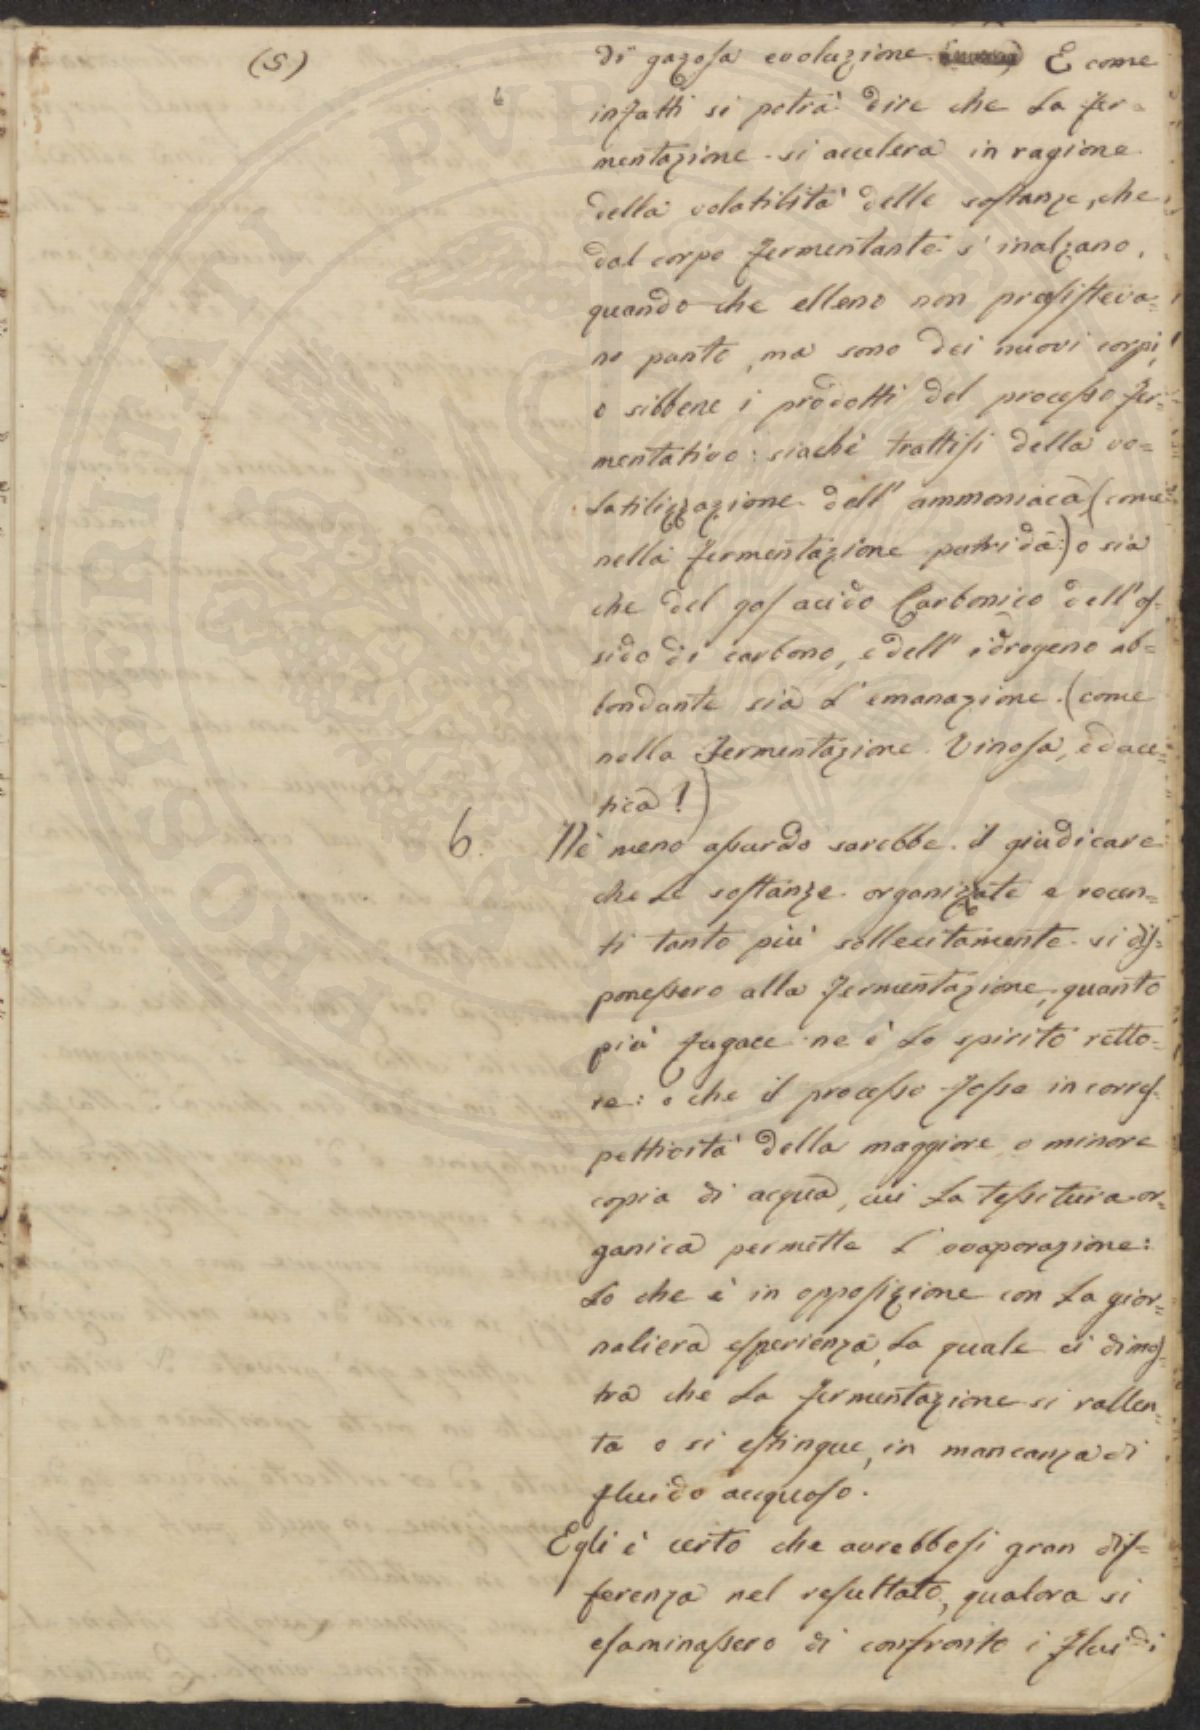 (5)
di gazosa evoluzione. E come
infatti si potrà dire che la fer=
mentazione si accelera in ragione
della volatilità delle sostanze, che
dal corpo fermentante s'inalzano,
quando che elleno non presisteva=
no punto, ma sono dei nuovi corpi,
o sibbene i prodotti del processo fer=
mentativo: siachè trattisi della vo=
latilizzazione dell'ammoniaca (come
nella fermentazione putrida:) o sia
che del gas acido Carbonico dell'os=
sido di carbono, e dell'idrogeno ab=
bondante sia l'emanazione. (come
nella fermentazione Vinosa, ed ace=
tica!)
6. Nè meno assurdo sarebbe il giudicare
che le sostanze organizate e recen=
ti tanto più sollecitamente si dis=
ponessero alla fermentazione, quanto
più fugace ne è lo spirito retto=
re: o che il processo fosse in corres=
pettività della maggiore o minore
copia di acqua, cui la tessitura or=
ganica permette l'evaporazione:
lo che è in opposizione con la gior=
naliera esperienza, la quale ci dimos=
tra che la fermentazione si rallen=
ta o si estingue, in mancanza di
fluido acquoso.
Egli è certo che avrebbesi gran dif=
ferenza nel resultato, qualora si
esaminassero di confronto i fluidi
PROSPERITATI PVBLICAE